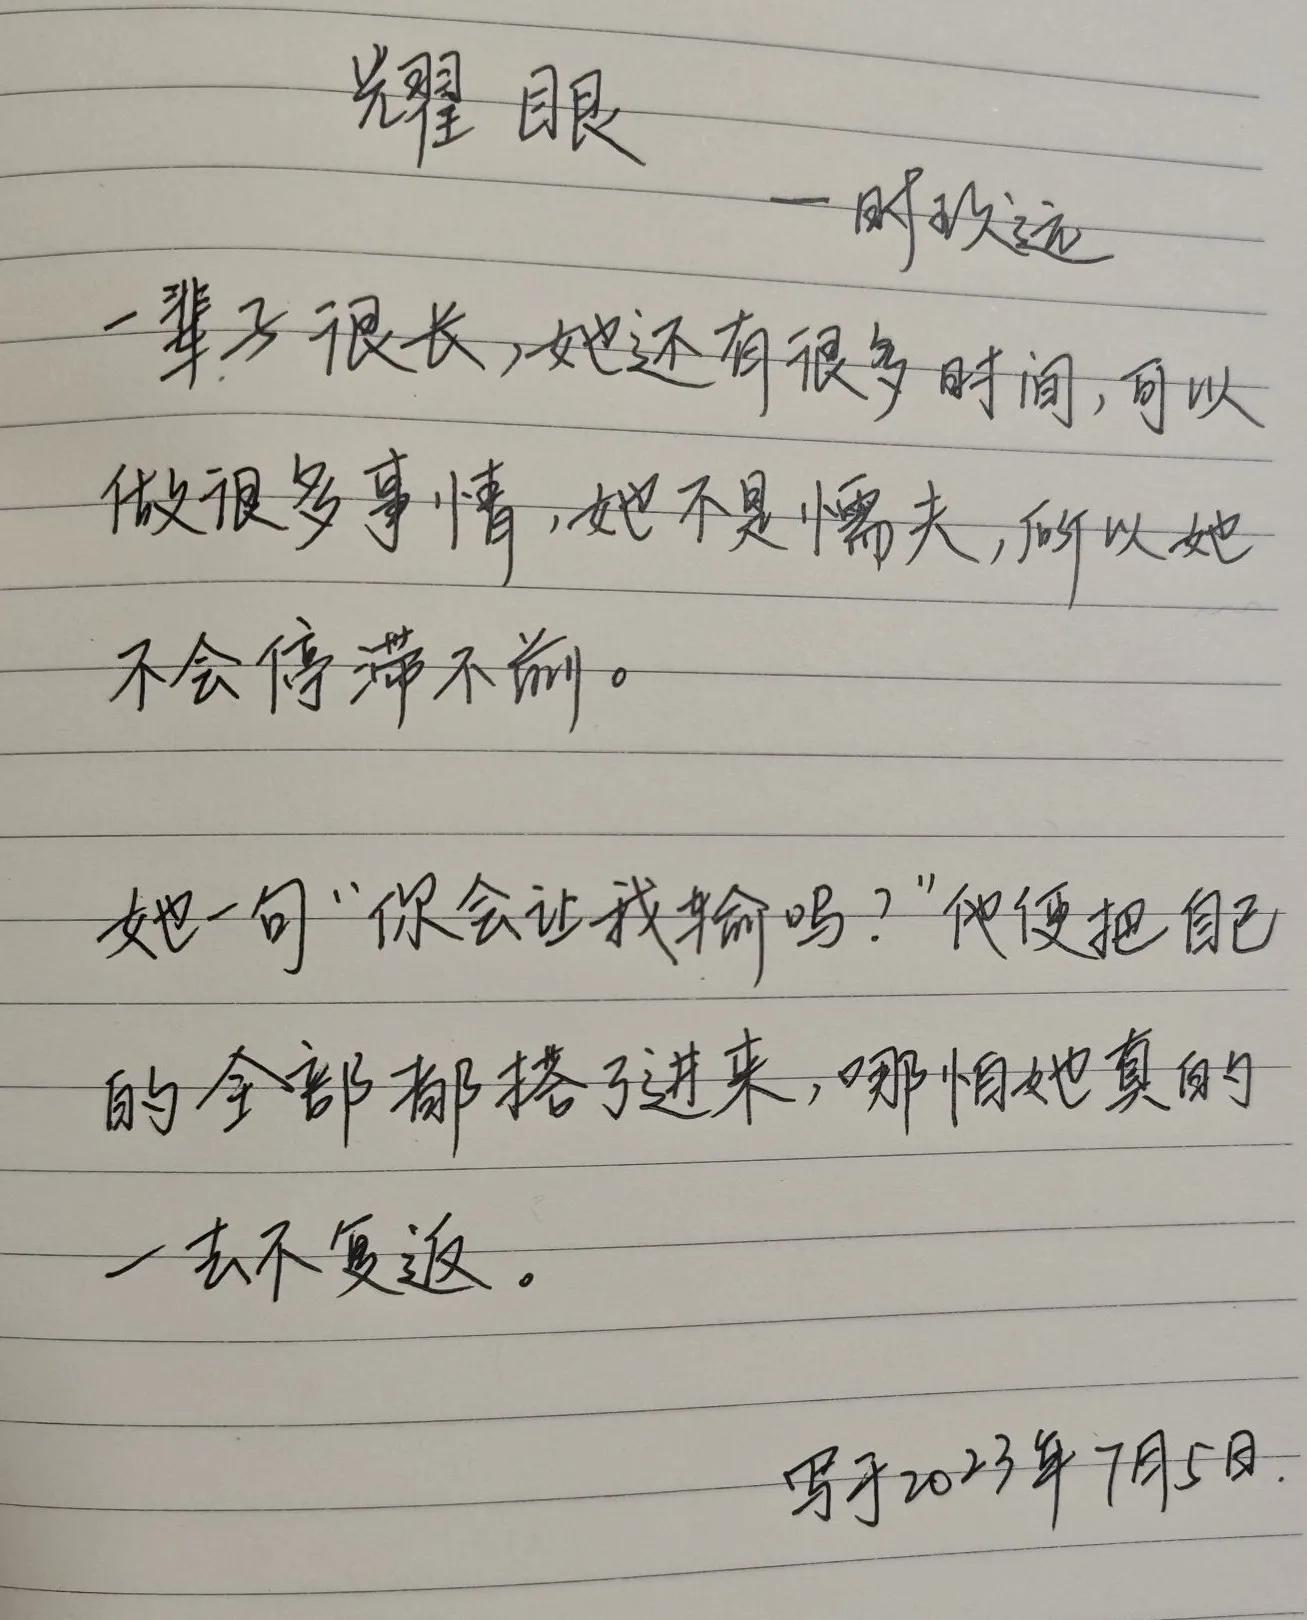 耀眼
一时玖远
一辈子很长,她还有很多时间,可以
做很多事情,她不是懦夫,所以她
不会停滞不前。
她一句“你会让我输吗?”他便把自己
的全部都搭了进来,哪怕她真的
一去不复返。
写于2023年7月5日.